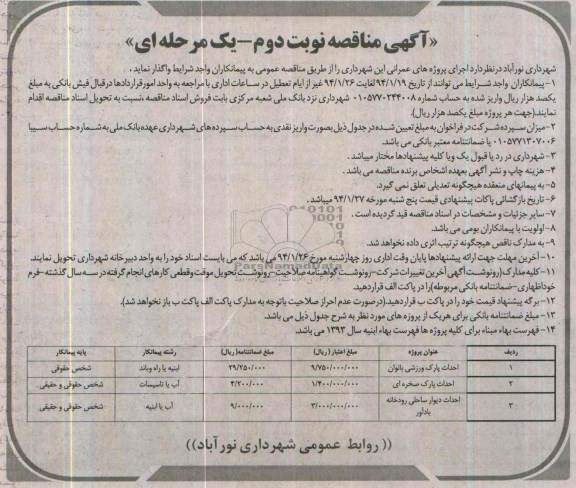 «آگهی مناقصه نوبت دوم – یک مرحله ای»
شهرداری نورآباد در نظر دارد اجرای پروژه های عمرانی این شهرداری را از طریق مناقصه عمومی به پیمانکاران واجد شرایط واگذار نماید .
۱- پیمانکاران واجد شرایط می توانند از تاریخ ۹۴/۱/۱۹ لغایت ۹۴/۱/۲۶ غیر از ایام تعطیل در ساعات اداری با مراجعه به واحد امور قراردادها در قبال فیش بانکی به مبلغ
یکصد هزار ریال واریز شده به حساب شماره ۰۱۰۵۷۷۰۲۴۴۰۰۸ شهرداری نزد بانک ملی شعبه مرکزی بابت فروش اسناد مناقصه نسبت به تحویل اسناد مناقصه اقدام
نمایند.(جهت هر پروژه مبلغ یکصد هزار ریال).
۲- میزان سپرده شرکت در فراخوان به مبلغ تعیین شده در جدول ذیل بصورت واریز نقدی به حساب سپرده های شهرداری عهده بانک ملی به شماره حساب سیبا
۰۱۰۵۷۷۱۳۰۷۰۰۶ یا ضمانتنامه معتبر بانکی می باشد.
۳- شهرداری در رد یا قبول یک و یا کلیه پیشنهادها مختار میباشد .
۴- هزینه چاپ و نشر آگهی بعهده اشخاص برنده مناقصه می باشد .
۵- به پیمانهای منعقده هیچگونه تعدیلی تعلق نمی گیرد.
۶- تاریخ بازگشائی پاکات پیشنهادی قیمت پنج شنبه مورخه ۹۴/۱/۲۷ میباشد .
۷- سایر جزئیات و مشخصات در اسناد مناقصه قید گردیده است .
۸- اولویت با پیمانکاران بومی می باشد.
۹- به مدارک ناقص هیچگونه ترتیب اثری داده نخواهد شد.
۱۰- آخرین مهلت جهت ارائه پیشنهادها پایان وقت اداری روز چهارشنبه مورخ ۹۴/۱/۲۶ می باشد که می بایست اسناد خود را به واحد دبیرخانه شهرداری تحویل نمایند.
۱۱- کلیه مدارک (رونوشت آگهی آخرین تغییرات شرکت- رونوشت گواهینامه صلاحیت - رونوشت تحویل موقت وقطعی کارهای انجام گرفته در سه سال گذشته - فرم
خوداظهاری - ضمانتنامه بانکی مربوطه)را در پاکت الف قراردهید.
۱۲- برگه پیشنهاد قیمت خود را در پاکت ب قراردهید.(درصورت عدم احراز صلاحیت باتوجه به مدارک پاکت الف پاکت ب باز نخواهد شد).
۱۳- مبلغ ضمانتنامه بانکی برای هریک از پروژه های مورد نظر به شرح جدول ذیل می باشد.
۱۴- فهرست بهاء مبناء برای کلیه پروژه ها فهرست بهاء ابنیه سال ۱۳۹۳ می باشد.
ردیف عنوان پروژه مبلغ اعتبار ( ریال) مبلغ ضمانتنامه( ریال) رشته پیمانکار پایه پیمانکار
۱ احداث پارک ورزشی بانوان ۹/۷۵۰/۰۰۰/۰۰۰ ۲۹/۲۵۰/۰۰۰ ابنیه یا راه وباند شخص حقوقی
۲ احداث پارک صخره ای ۱/۴۰۰/۰۰۰/۰۰۰ ۴/۲۰۰/۰۰۰ آب یا تاسیسات شخص حقوقی و حقیقی
۳ احداث دیوار ساحلی رودخانه بادآور ۳/۰۰۰/۰۰۰/۰۰۰ ۹/۰۰۰/۰۰۰ آب یا ابنیه شخص حقوقی و حقیقی
(( روابط عمومی شهرداری نورآباد))